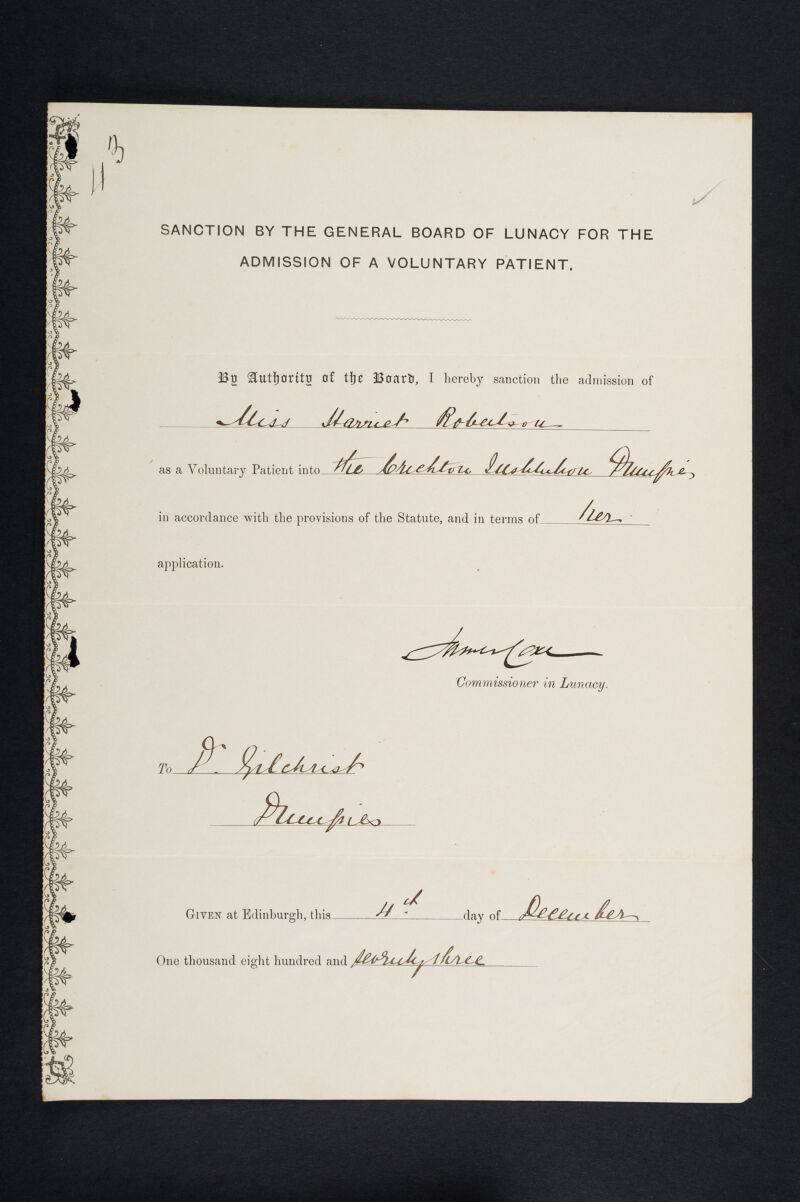 SANCTION BY THE GENERAL BOARD OF LUNACY FOR THE
ADMISSION OF A VOLUNTARY PATIENT.
By Authority of the Board, I hereby sanction the admission of
Miss Harriet Robertson
as a Voluntary Patient into the Crichton Institution Dumfries
in accordance with the provisions of the Statute, and in terms of her
application.
James Coxe
Commissioner in Lunacy.
To Dr. Gilchrist
Dumfries
GIVEN at Edinburgh, this 4th day of December
One thousand eight hundred and seventy three